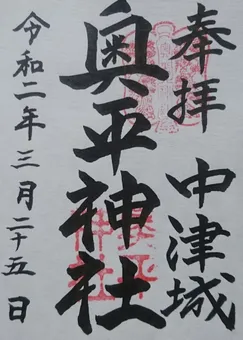 奉拝
中津城
奥平神社
令和二年三月二十五日